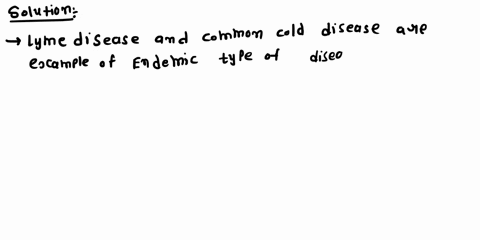 Solution:-
→ Lyme disease and common cold disease are
example of Endemic type of diseo